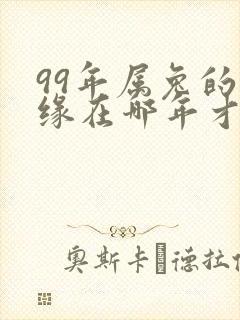 99年属兔的
缘在哪年才
奥斯卡·德拉伦